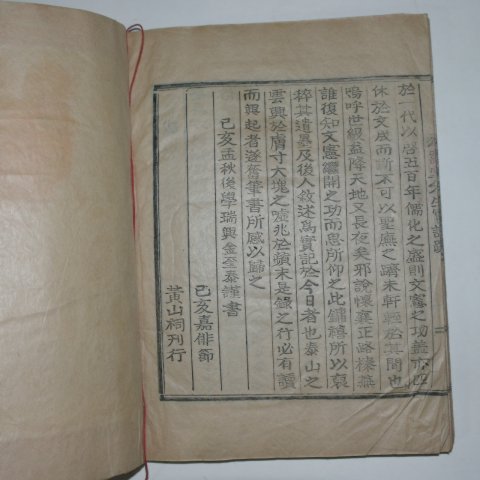 於一代以啓五百年儒化之盛則文憲之功蓋亦
休於文成而斷不可以聖廡之躋未軒輊於其間也
嗚呼世級益降天地又長夜矣邪說懷襄正路榛蕪
誰復知文憲繼開之功而思所仰之此錦禧所以裒
稡其遺墓及後人敍述爲實記於今日者也泰山之
雲興於膚寸大塊之噓兆於蘋末是錄之行必有讀
而興起者遂奮筆書所感以歸之
己亥孟秋後學瑞興金至泰謹書
己亥嘉俳節
黃山祠刊行